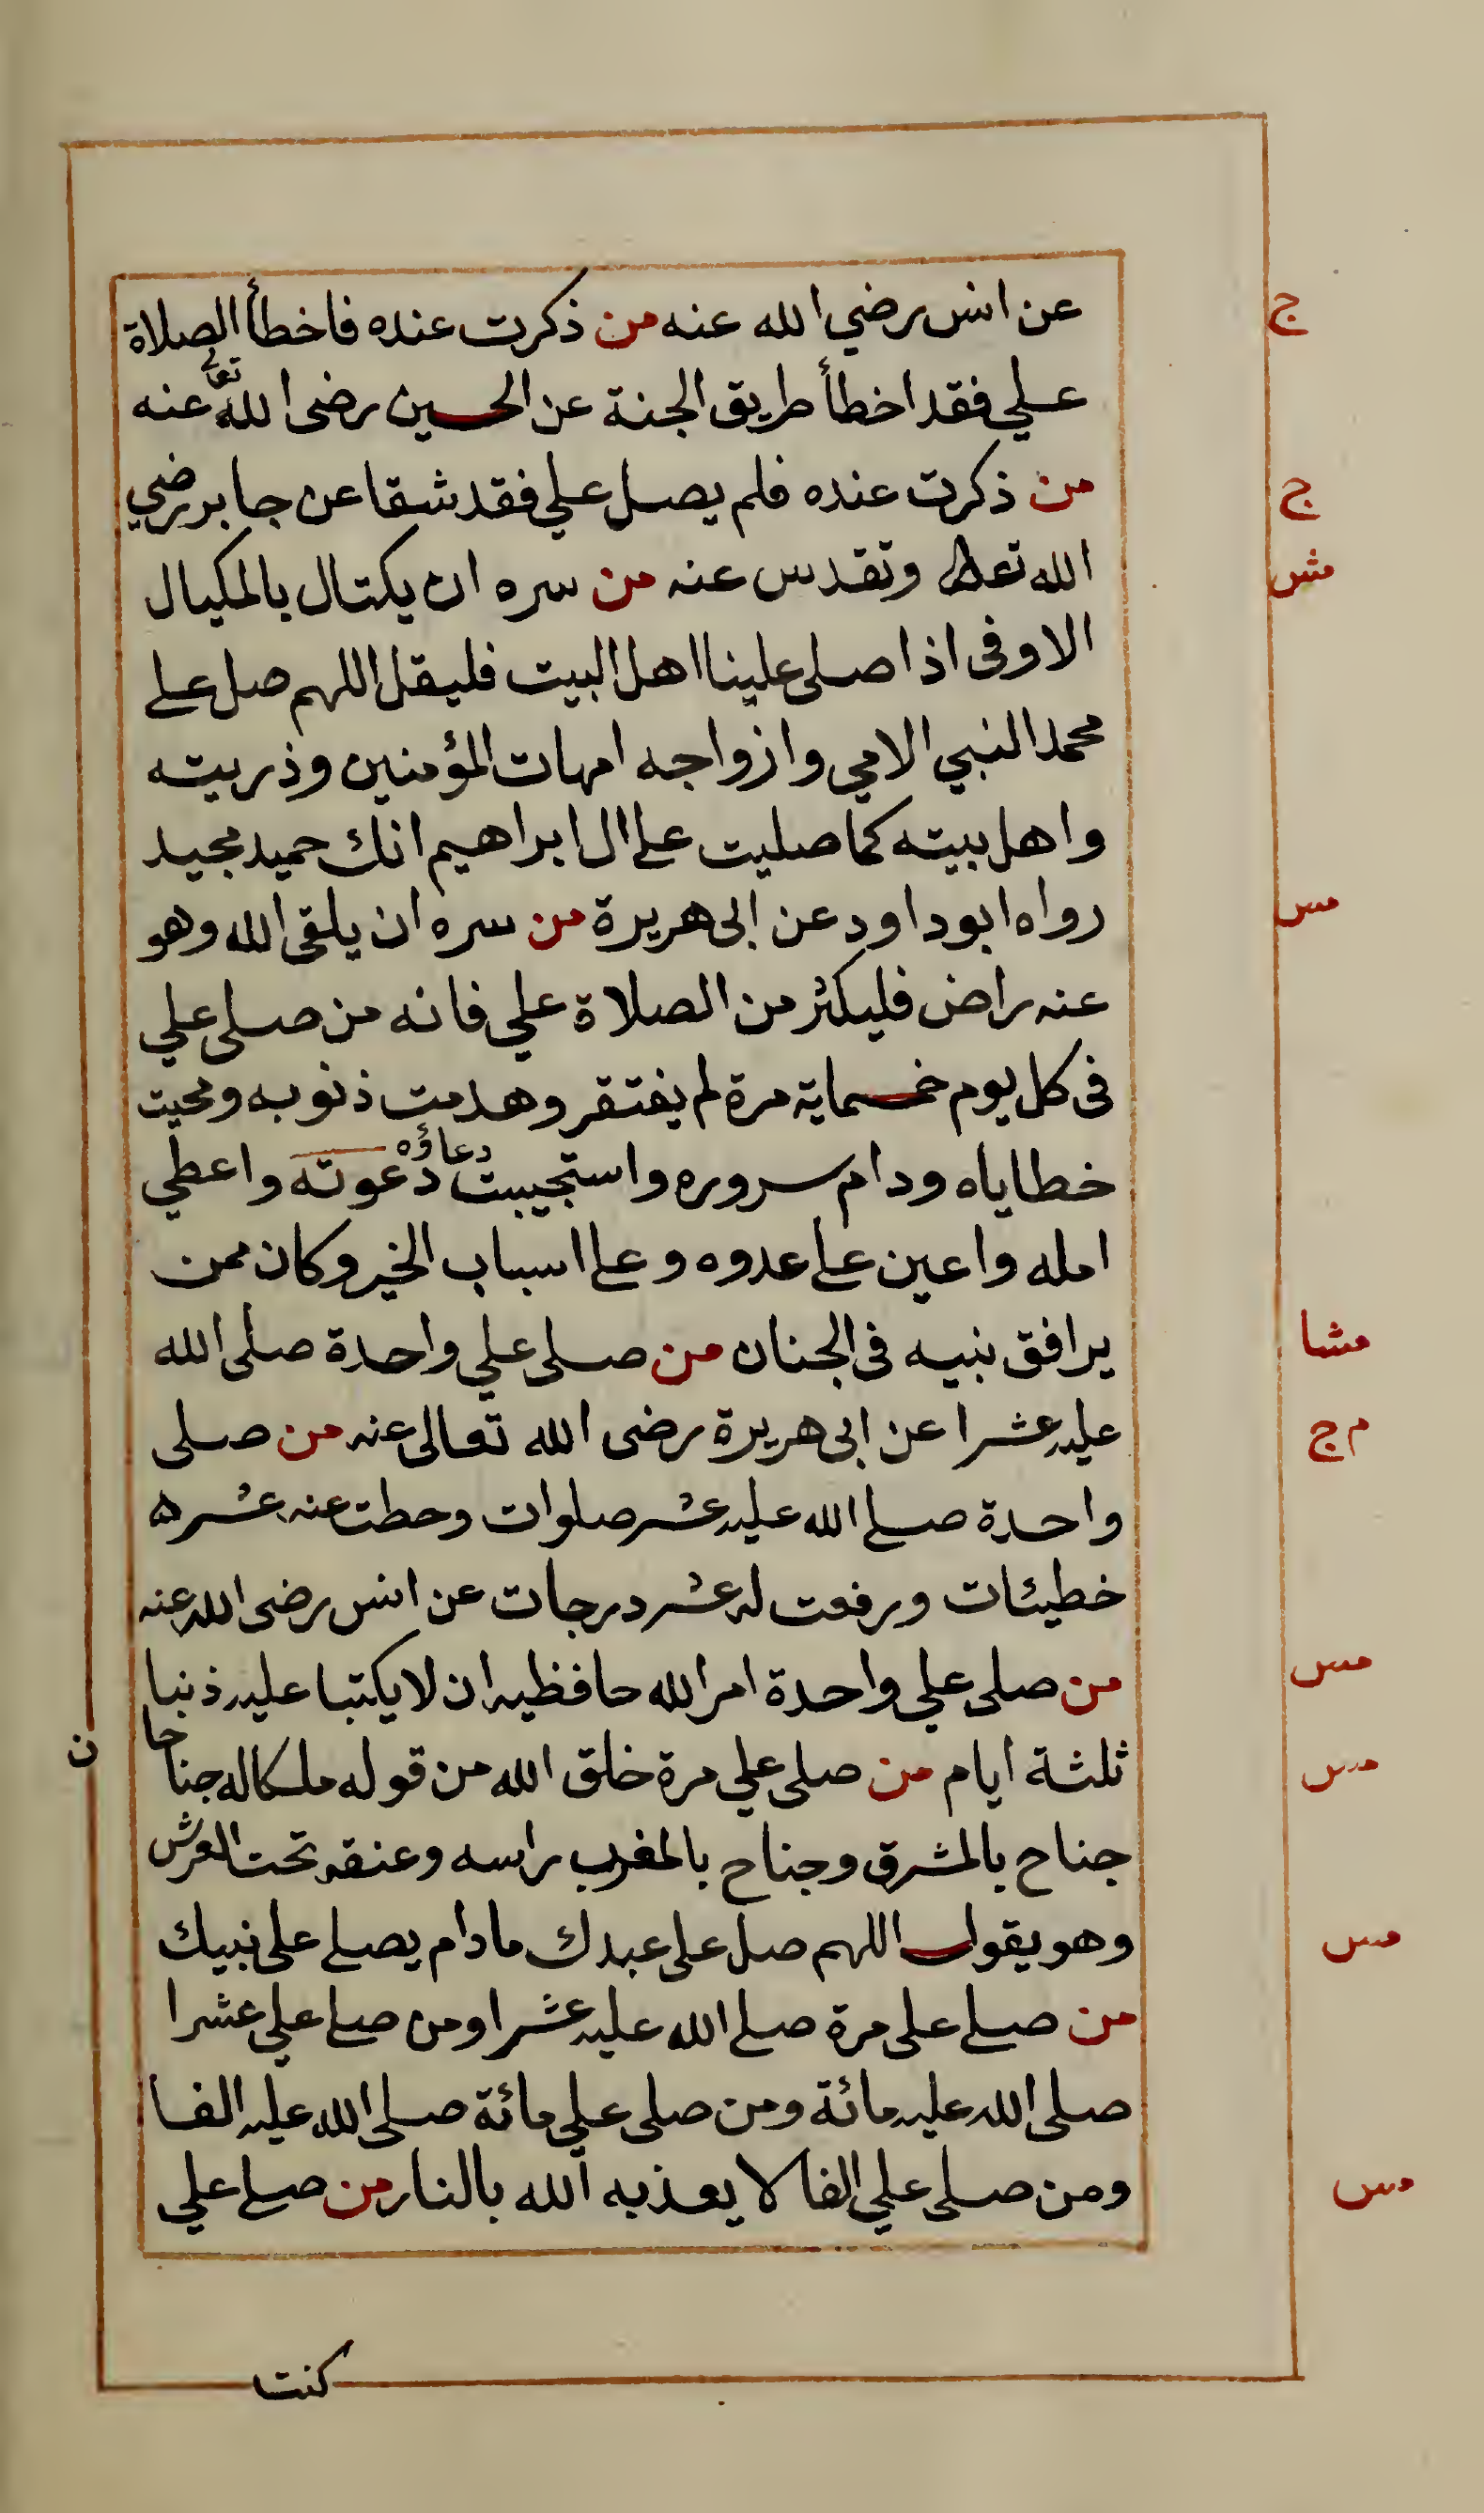 ج
عن انس رضي الله عنه من ذكرت عنده فاخطأ الصلاة
علي فقد اخطأ طريق الجنة عن الحسين رضى الله تعالى عنه
ج
من ذكرت عنده فلم يصل علي فقد شقا عن جابر رضي
مش
الله تعالى وتقدس عنه من سره ان يكتال بالمكيال
الاوفى اذا صلى علينا اهل البيت فليقل اللهم صل على
محمد النبي الامي وازواجه امهات المؤمنين وذريته
واهل بيته كما صليت على ال ابراهيم انك حميد مجيد
مس
رواه ابو داود عن ابى هريرة من سره ان يلقى الله وهو
عنه راض فليكثر من الصلاة علي فانه من صلى علي
فى كل يوم خمسماية مرة لم يفتقر وهدمت ذنوبه ومحيت
دعاؤه
خطاياه ودام سروره واستجيبت دعوته واعطي
امله واعين على عدوه وعلى اسباب الخير وكان ممن
مشا
يرافق نبيه فى الجنان من صلى علي واحدة صلى الله
م ج
عليه عشرا عن ابى هريرة رضى الله تعالى عنه من صلى
واحدة صلى الله عليه عشر صلوات وحطت عنه عشره
خطيئات ورفعت له عشر درجات عن انس رضى الله عنه
مس
من صلى علي واحدة امر الله حافظيه ان لا يكتبا عليه ذنبا
مس
ثلثة ايام من صلى علي مرة خلق الله من قوله ملكا له جناحا
ن
جناح بالمشرق وجناح بالمغرب راسه وعنقه تحت العرش
مس
وهو يقول اللهم صل على عبدك مادام يصلى على نبيك
من صلى على مرة صلى الله عليه عشرا ومن صلى علي عشرا
صلى الله عليه مائة ومن صلى علي مائة صلى الله عليه الفا
مس
ومن صلى علي الفا لا يعذبه الله بالنار من صلى علي
كنت